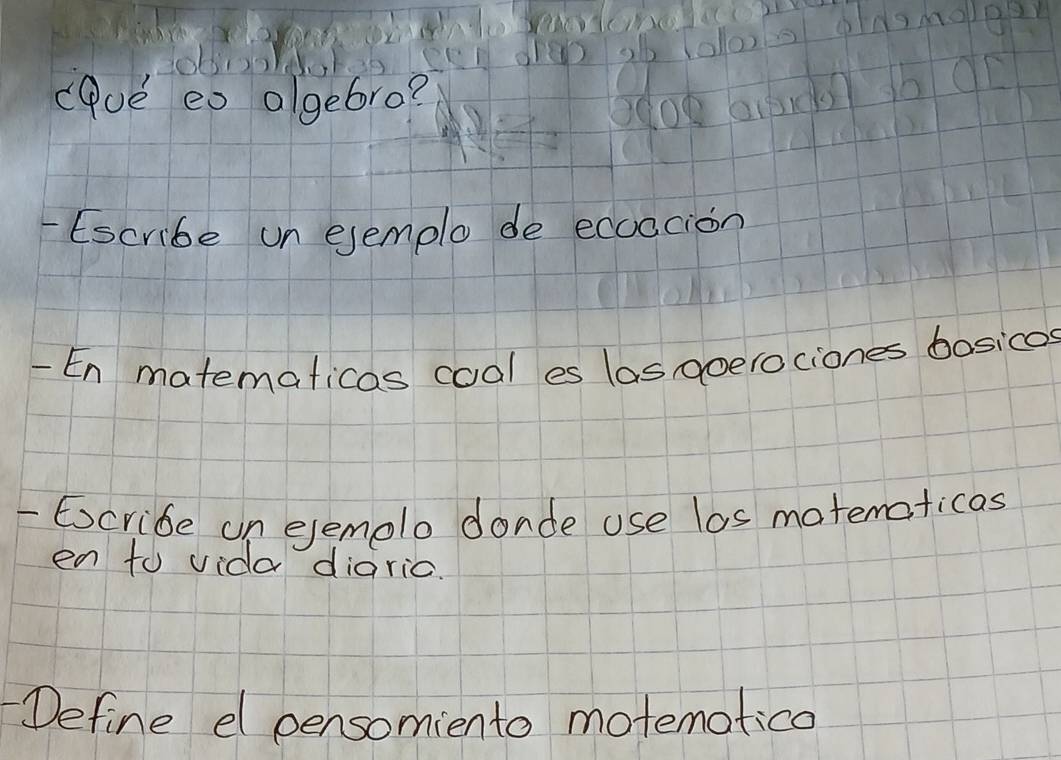 ¿Qué es algebra?
-Escribe un ejemplo de ecuación
-En matematicas cual es las operaciones basicas
-Escribe un ejemplo donde use las matematicas
en tu vida diaria.
-Define el pensamiento matematico